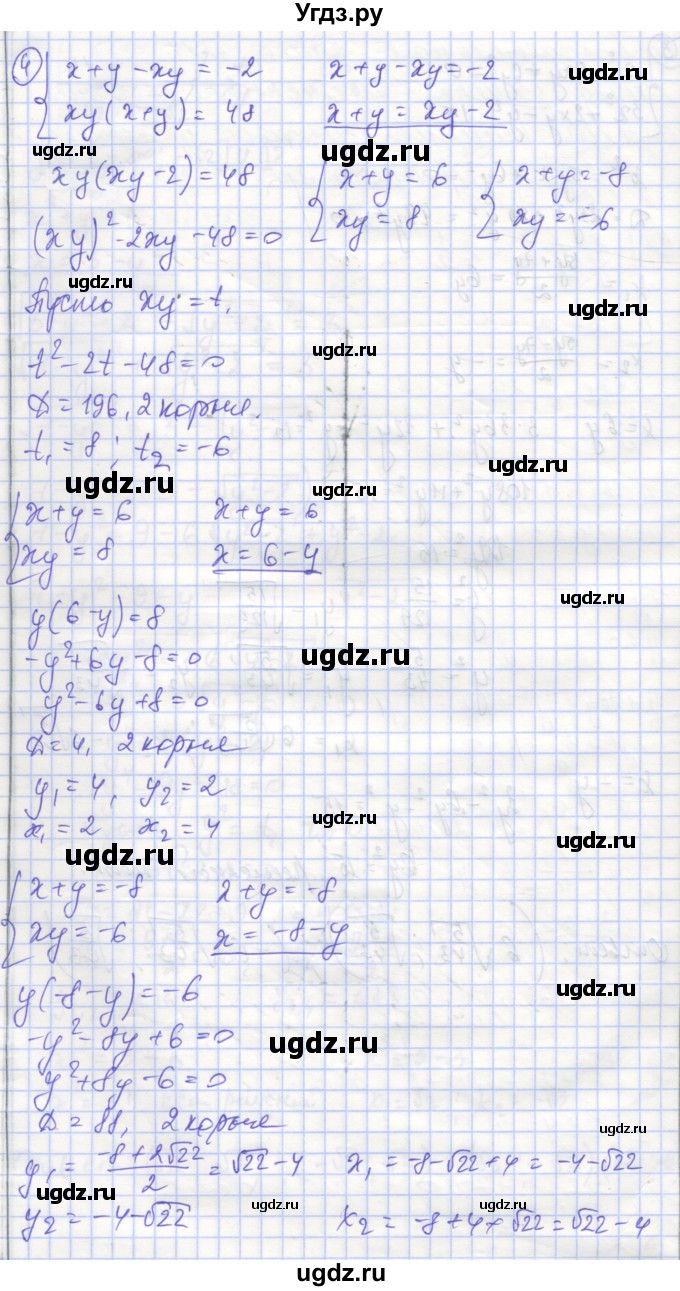 Угдз.ру
4) { x+y-xy = -2    x+y-xy = -2
xy(x+y) = 48    x+y = xy-2
ugdz.ru ugdz.ru ugdz.ru
xy(xy-2) = 48    { x+y = 6    { x+y = -8
(xy)² - 2xy - 48 = 0    xy = 8    xy = -6
ugdz.ru ugdz.ru
Пусть xy = t,
ugdz.ru
t² - 2t - 48 = 0
D = 196, 2 корня.
t₁ = 8; t₂ = -6
ugdz.ru
ugdz.ru ugdz.ru
{ x+y = 6    x+y = 6
xy = 8    x = 6-y
ugdz.ru
y(6-y) = 8
-y²+6y-8 = 0
ugdz.ru
y²-6y+8 = 0
D = 4, 2 корня
y₁ = 4, y₂ = 2
x₁ = 2    x₂ = 4
ugdz.ru
ugdz.ru
ugdz.ru
{ x+y = -8    x+y = -8
xy = -6    x = -8-y
y(-8-y) = -6
ugdz.ru
-y²-8y+6 = 0
ugdz.ru
y²+8y-6 = 0
D = 88, 2 корня
ugdz.ru
y₁ = (-8+2√22)/2 = √22-4    x₁ = -8-√22+4 = -4-√22
ugdz.ru ugdz.ru ugdz.ru
y₂ = -4-√22    x₂ = -8+4+√22 = √22-4
ugdz.ru